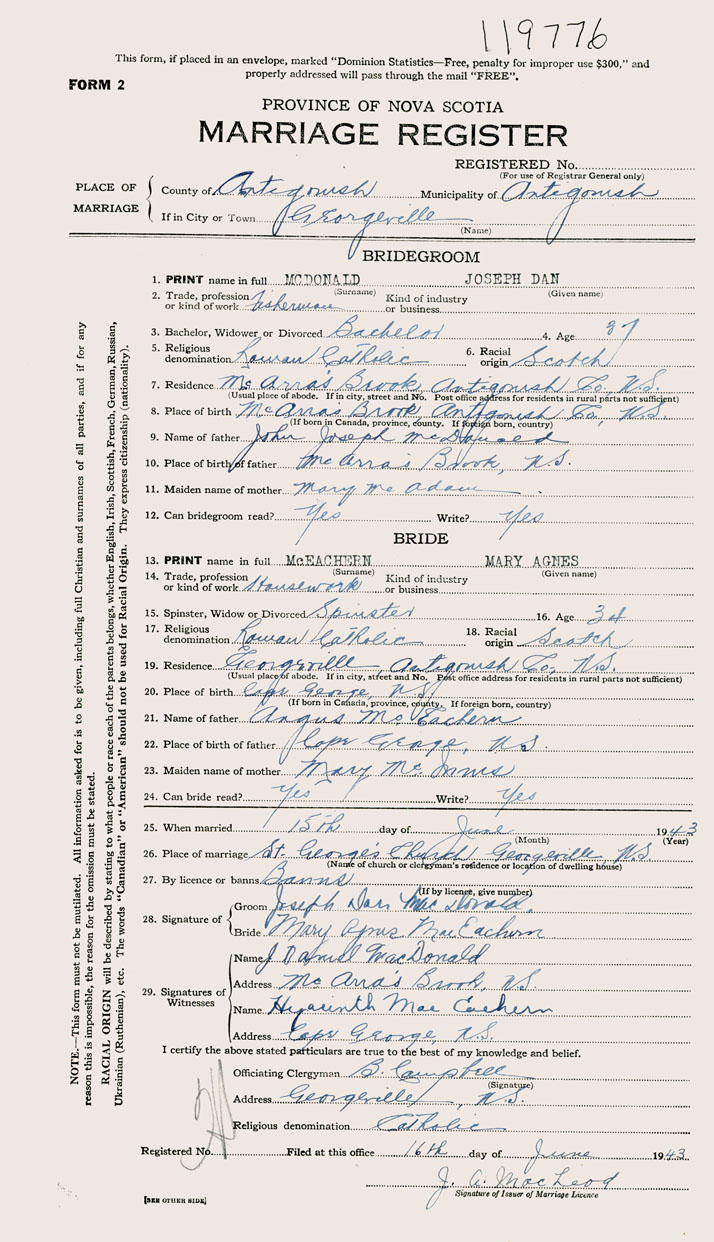 119776
This form, if placed in an envelope, marked "Dominion Statistics—Free, penalty for improper use $300," and
properly addressed will pass through the mail "FREE".
FORM 2
PROVINCE OF NOVA SCOTIA
MARRIAGE REGISTER
REGISTERED No.
(For use of Registrar General only)
PLACE OF MARRIAGE
County of Antigonish Municipality of Antigonish
If in City or Town Georgeville
(Name)
BRIDEGROOM
1. PRINT name in full MCDONALD JOSEPH DAN
(Surname) (Given name)
2. Trade, profession or kind of work fisherman Kind of industry or business
3. Bachelor, Widower or Divorced Bachelor 4. Age 37
5. Religious denomination Roman Catholic 6. Racial origin Scotch
7. Residence McArra's Brook, Antigonish Co., N.S.
(Usual place of abode. If in city, street and No. Post office address for residents in rural parts not sufficient)
8. Place of birth McArras Brook, Antigonish Co., N.S.
(If born in Canada, province, county. If foreign born, country)
9. Name of father John Joseph McDonald
10. Place of birth of father McArra's Brook, N.S.
11. Maiden name of mother Mary McAdam
12. Can bridegroom read? Yes Write? Yes
BRIDE
13. PRINT name in full McEACHERN MARY AGNES
(Surname) (Given name)
14. Trade, profession or kind of work Housework Kind of industry or business
15. Spinster, Widow or Divorced Spinster 16. Age 34
17. Religious denomination Roman Catholic 18. Racial origin Scotch
19. Residence Georgeville, Antigonish Co., N.S.
(Usual place of abode. If in city, street and No. Post office address for residents in rural parts not sufficient)
20. Place of birth Cape George, N.S.
(If born in Canada, province, county. If foreign born, country)
21. Name of father Angus McEachern
22. Place of birth of father Cape George, N.S.
23. Maiden name of mother Mary McInnis
24. Can bride read? Yes Write? Yes
25. When married 15th day of June 1943
(Month) (Year)
26. Place of marriage St. George's Church Georgeville, N.S.
(Name of church or clergyman's residence or location of dwelling house)
27. By licence or banns Banns
(If by licence, give number)
28. Signature of
Groom Joseph Dan MacDonald.
Bride Mary Agnes MacEachern
29. Signatures of Witnesses
Name J Daniel MacDonald
Address McArra's Brook, N.S.
Name Hyacinth MacEachern
Address Cape George, N.S.
I certify the above stated particulars are true to the best of my knowledge and belief.
Officiating Clergyman B. Campbell
(Signature)
Address Georgeville, N.S.
Religious denomination Catholic
Registered No. Filed at this office 16th day of June 1943
J. A. MacLeod
Signature of Issuer of Marriage Licence
[SEE OTHER SIDE]
NOTE.—This form must not be mutilated. All information asked for is to be given, including full Christian and surnames of all parties, and if for any
reason this is impossible, the reason for the omission must be stated.
RACIAL ORIGIN will be described by stating to what people or race each of the parents belongs, whether English, Irish, Scottish, French, German, Russian,
Ukrainian (Ruthenian), etc. The words "Canadian" or "American" should not be used for Racial Origin. They express citizenship (nationality).